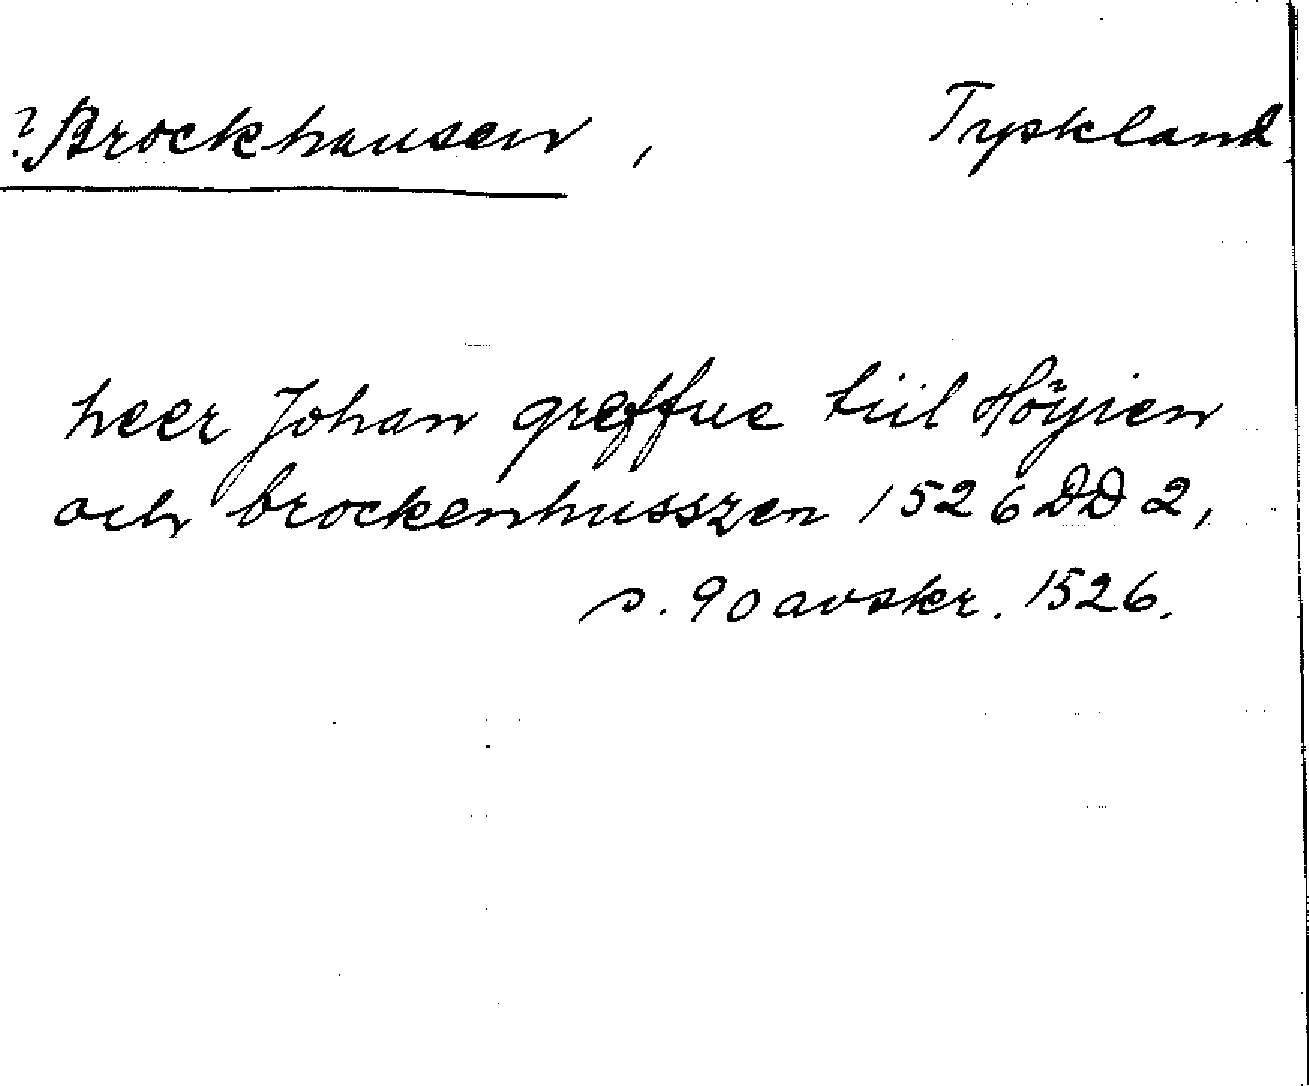 ?Brockhausen, Tyskland
heer Johan greffue tiil Höyien
och brockenhusszen 1526 DD 2,
s. 90 avskr. 1526.